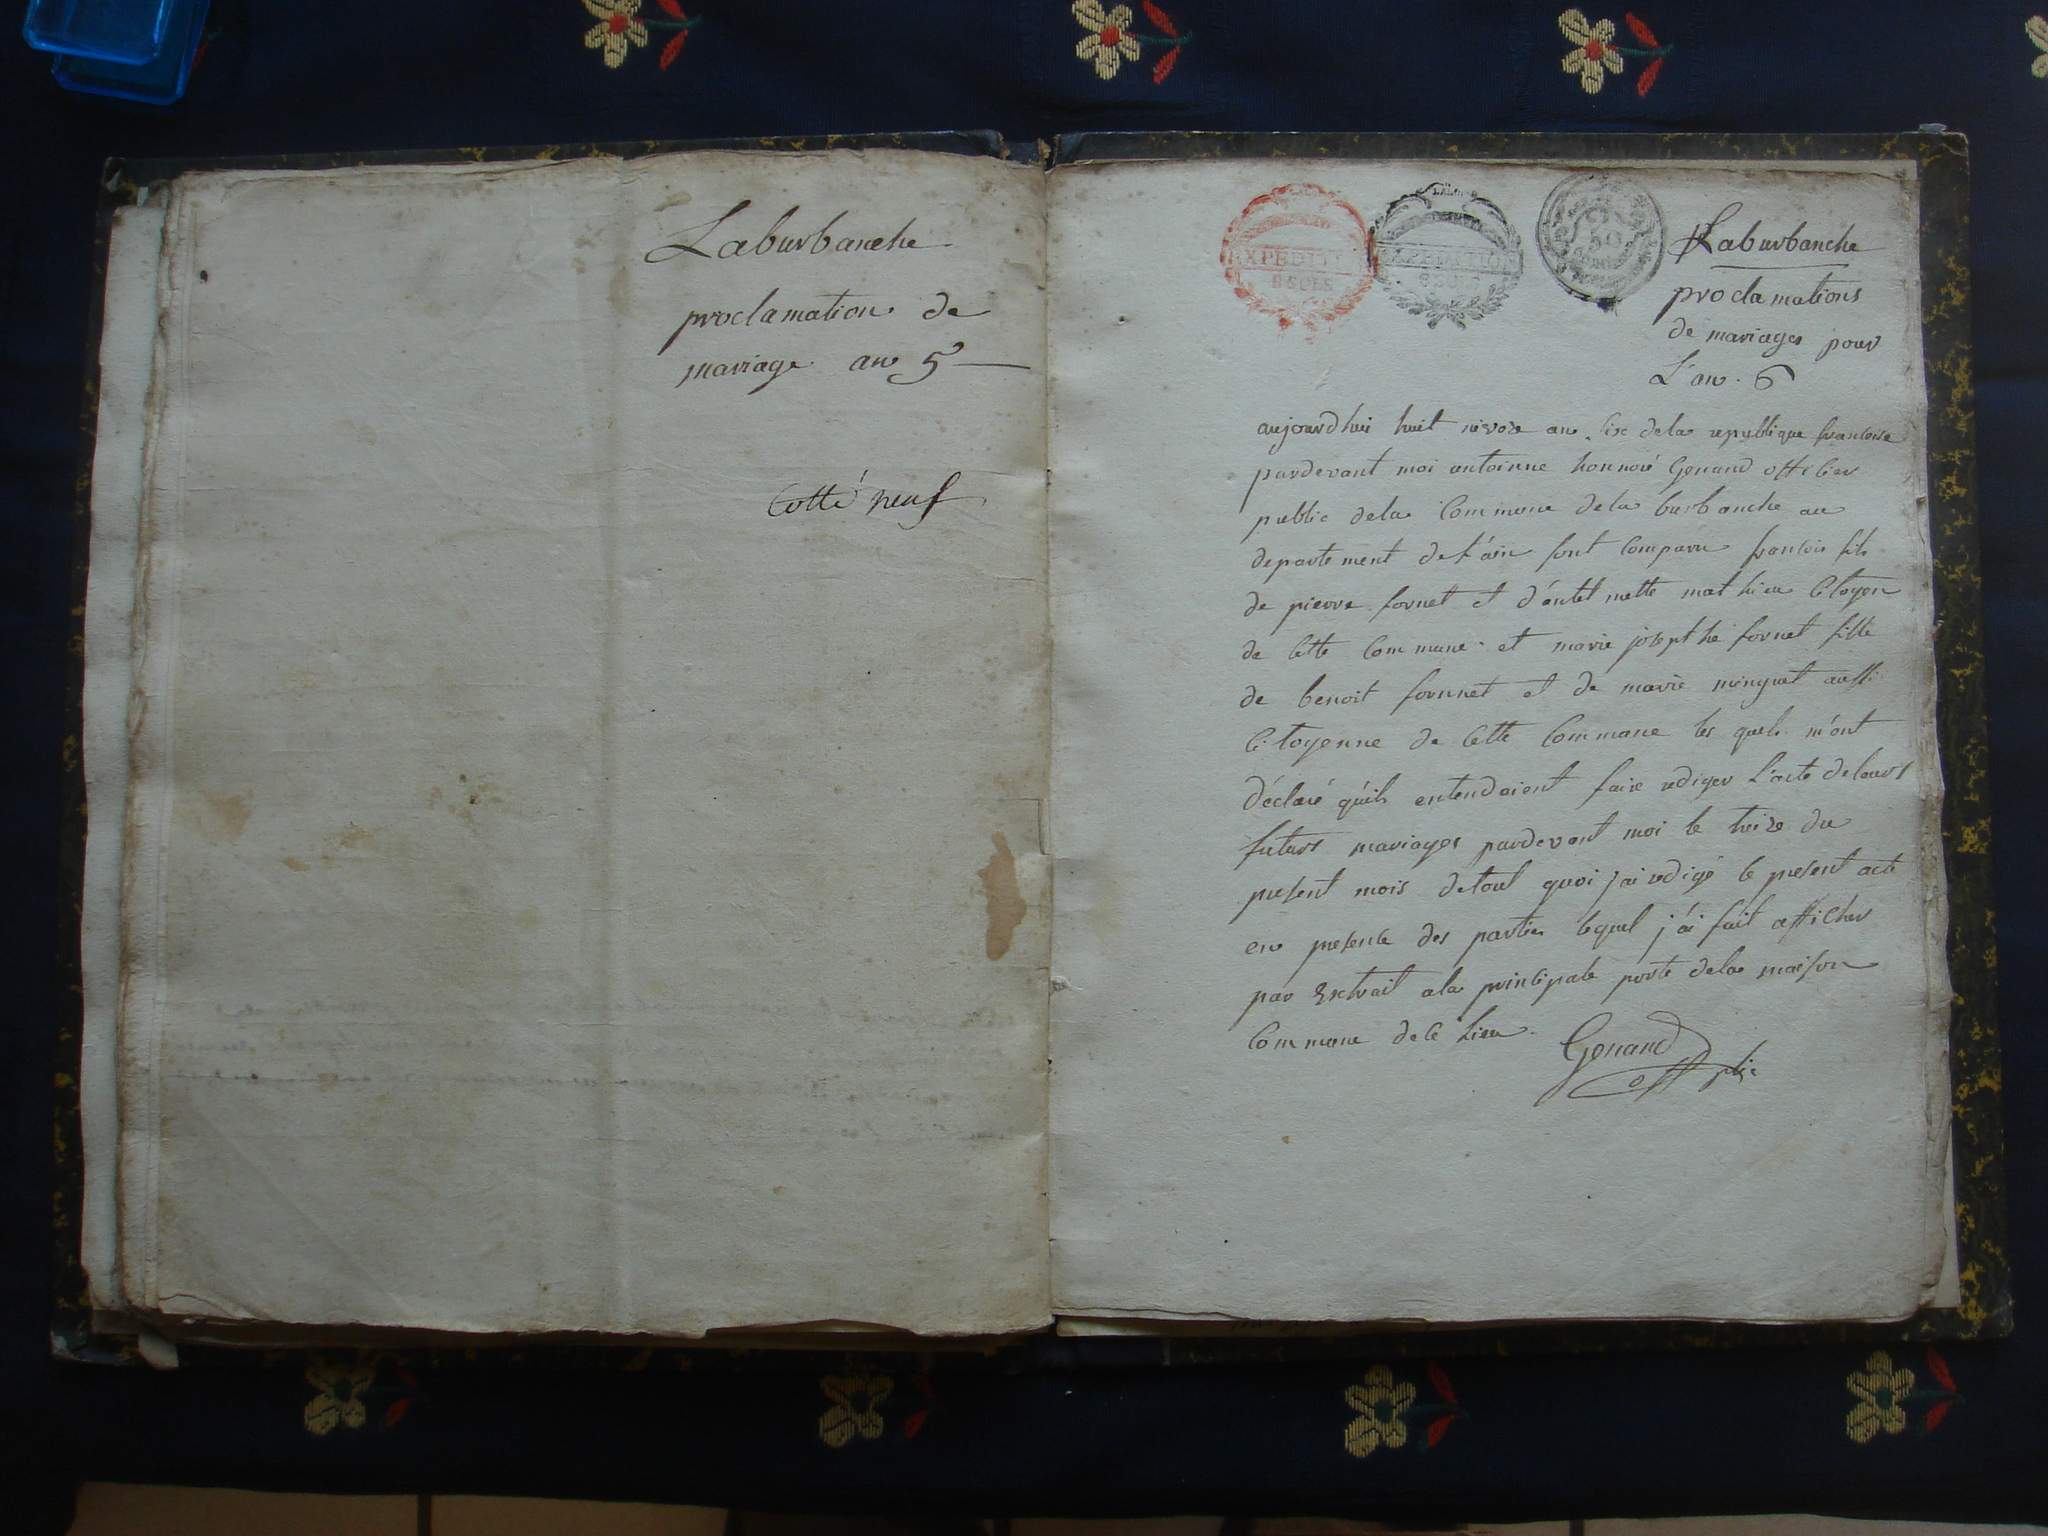 Laburbanche
proclamation de
mariage an 5
Cotté neuf
EXPEDITION
8 SOLS
EXPEDITION
8 SOLS
50
Laburbanche
proclamations
de mariages pour
L'an. 6
aujourdhui huit nivose an six dela republique francoise
pardevant moi antoinne honnoré Genand officier
public dela Commune dela burbanche au
departement de l'ain sont Comparu francois fils
de pierre fornet et d'antelmette mathieu Citoyen
de Cette Commune. et marie josepthe fornet fille
de benoit fornnet et de marie minguet aussi
Citoyenne de Cette Commune les quels m'ont
déclaré qu'ils entendoient faire rediger L'acte deleurs
futurs mariages pardevant moi le treize du
present mois detout quoi j'ai redigé le present acte
en presence des parties lequel j'ai fait afficher
par Extrait ala principale porte dela maison
Commune de Ce Lieu.
Genand
off plic